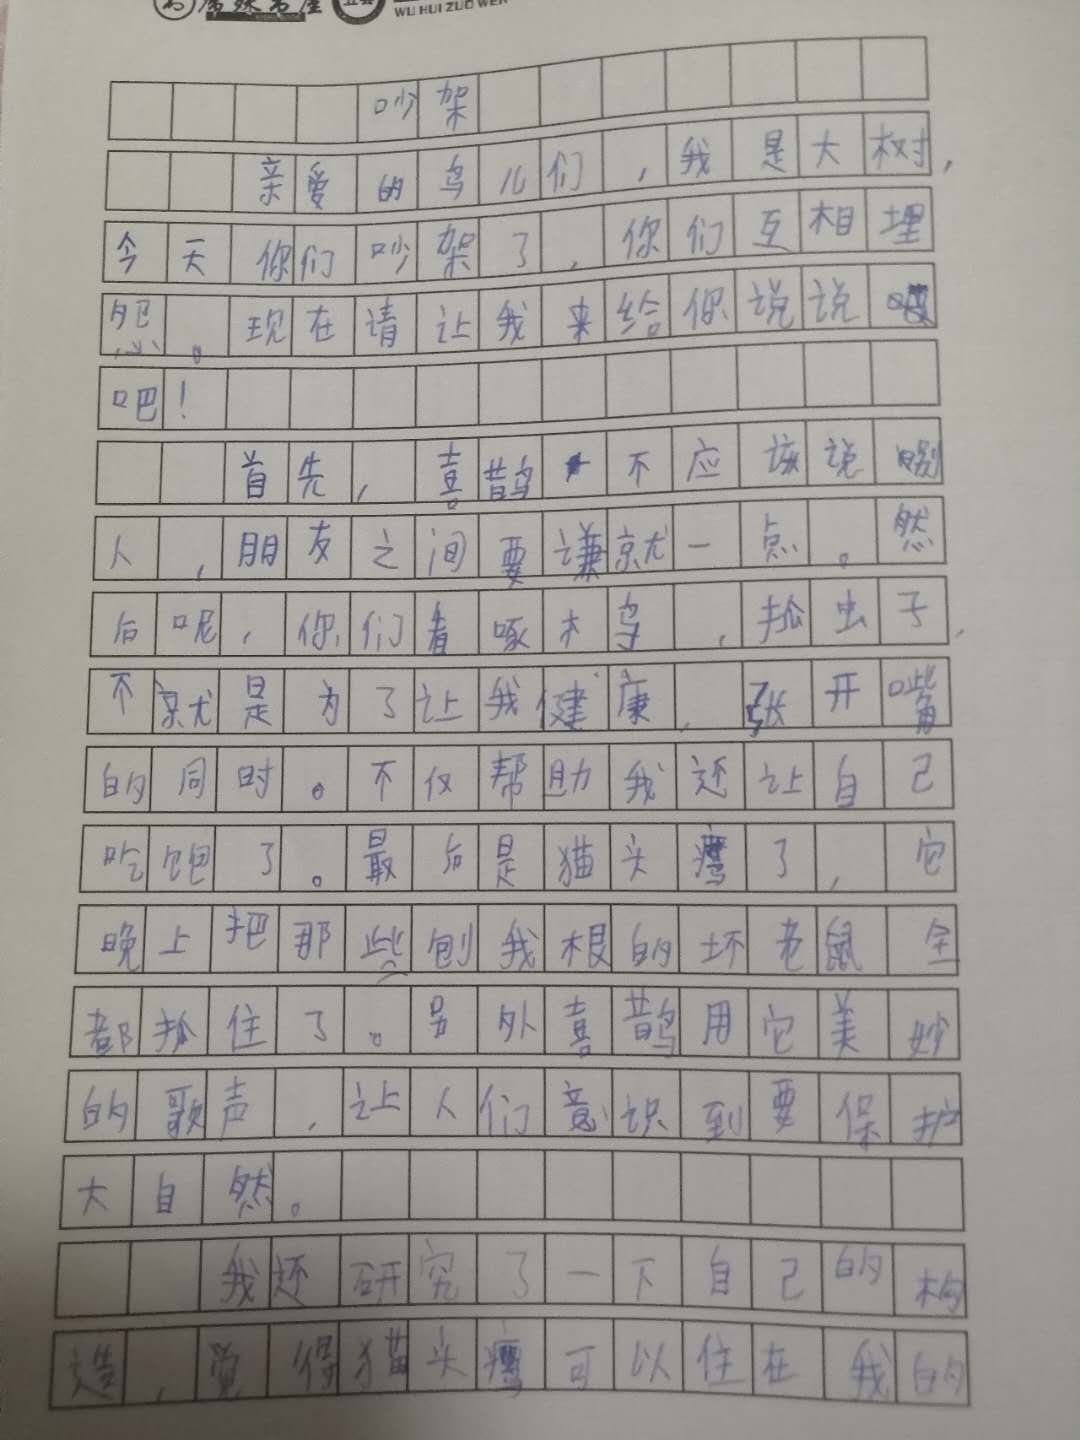 WU HUI ZUO WEN
吵架
亲爱的鸟儿们，我是大树，
今天你们吵架了，你们互相埋
怨。现在请让我来给你说说
吧！
首先，喜鹊不应该说别
人，朋友之间要谦就一点。然
后呢，你们看啄木鸟，抓虫子，
不就是为了让我健康，张开嘴
的同时。不仅帮助我还让自己
吃饱了。最后是猫头鹰了，它
晚上把那些刨我根的坏老鼠全
都抓住了。另外喜鹊用它美妙
的歌声，让人们意识到要保护
大自然。
我还研究了一下自己的构
造，觉得猫头鹰可以住在我的